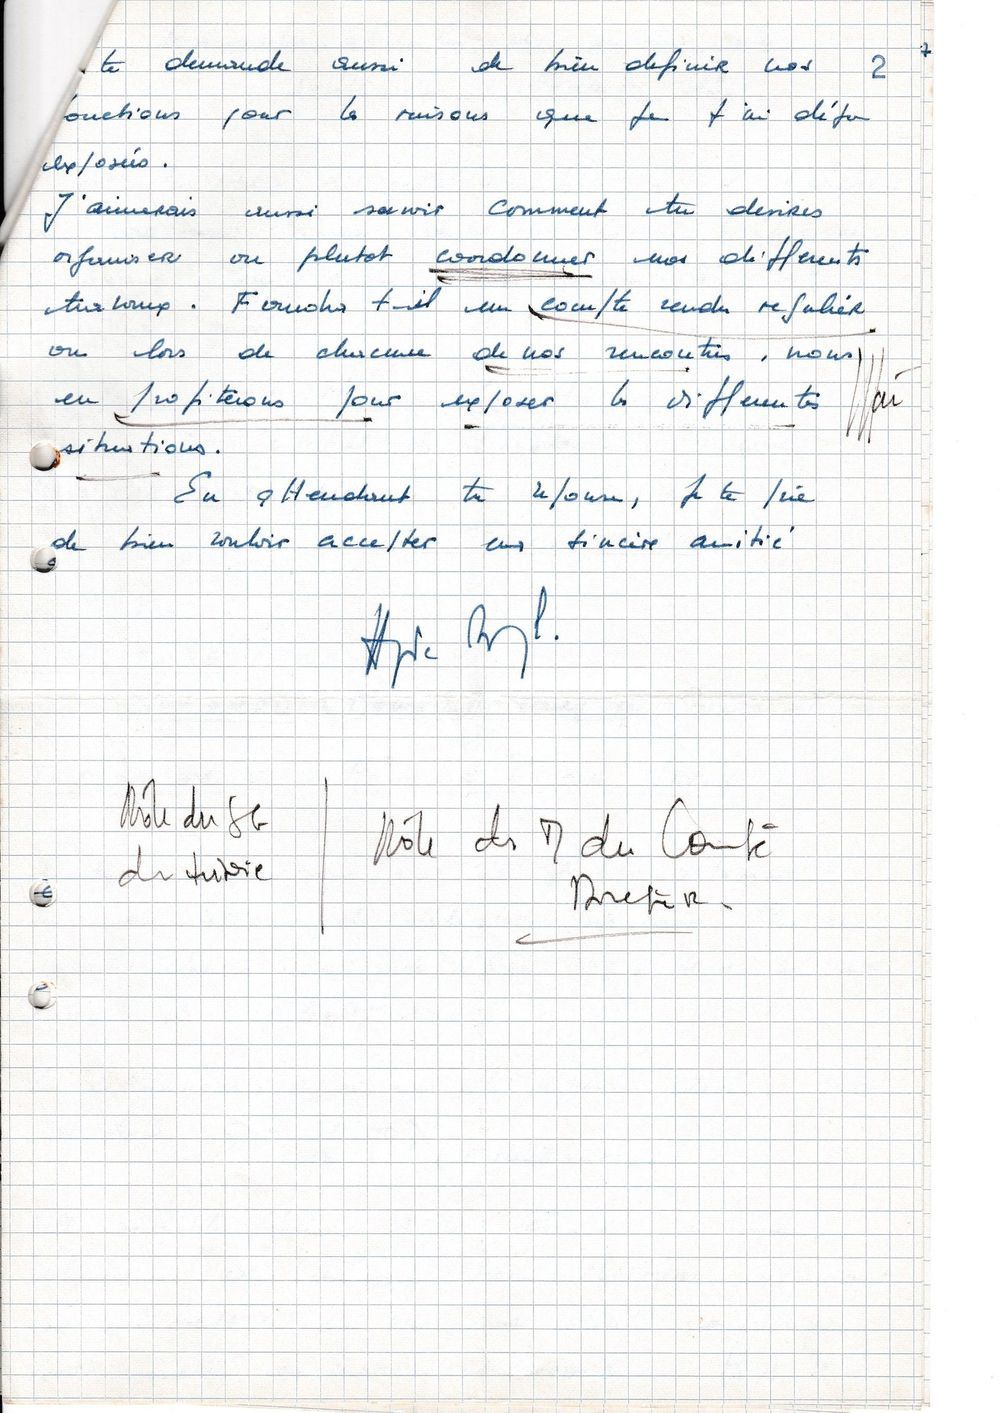 te demande aussi de bien definir nos 2
fonctions pour les raisons que je t'ai déjà
exposées.
J'aimerais aussi savoir comment tu desires
organiser ou plutot coordonner nos differents
travaux. Faudra t-il un compte rendu regulier
ou lors de chacune de nos rencontres, nous
en profiterons pour exposer les differentes
situations.
En attendant ta réponse, je te prie
de bien vouloir accepter ma sincère amitié
Rôle du
Rôle du du Comité
Directeur.